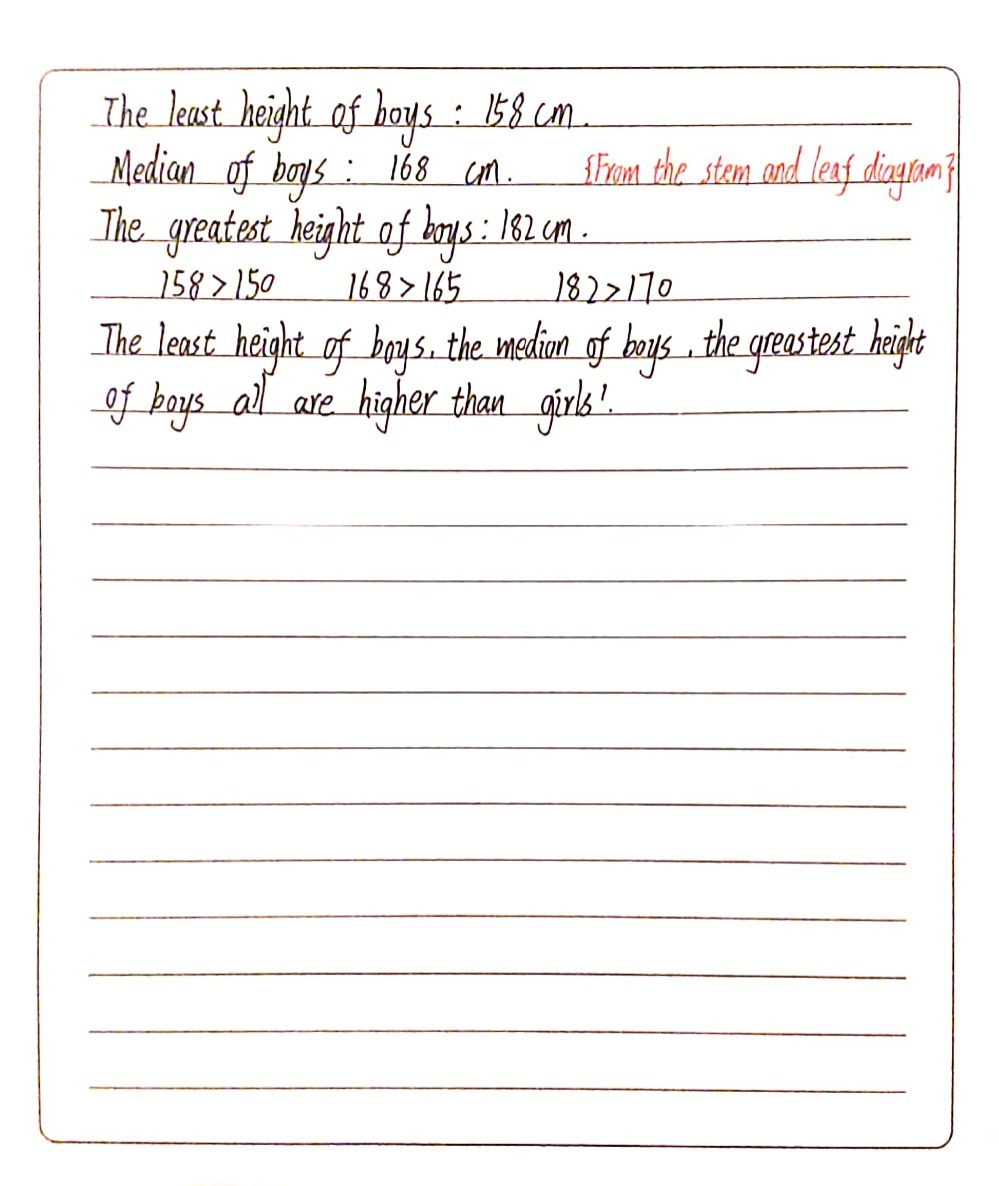 The least height of boys : 158 cm.
Median of boys : 168 cm. {From the stem and leaf diagram}
The greatest height of boys : 182 cm.
158 > 150 168 > 165 182 > 170
The least height of boys, the median of boys, the greastest height
of boys all are higher than girls'.